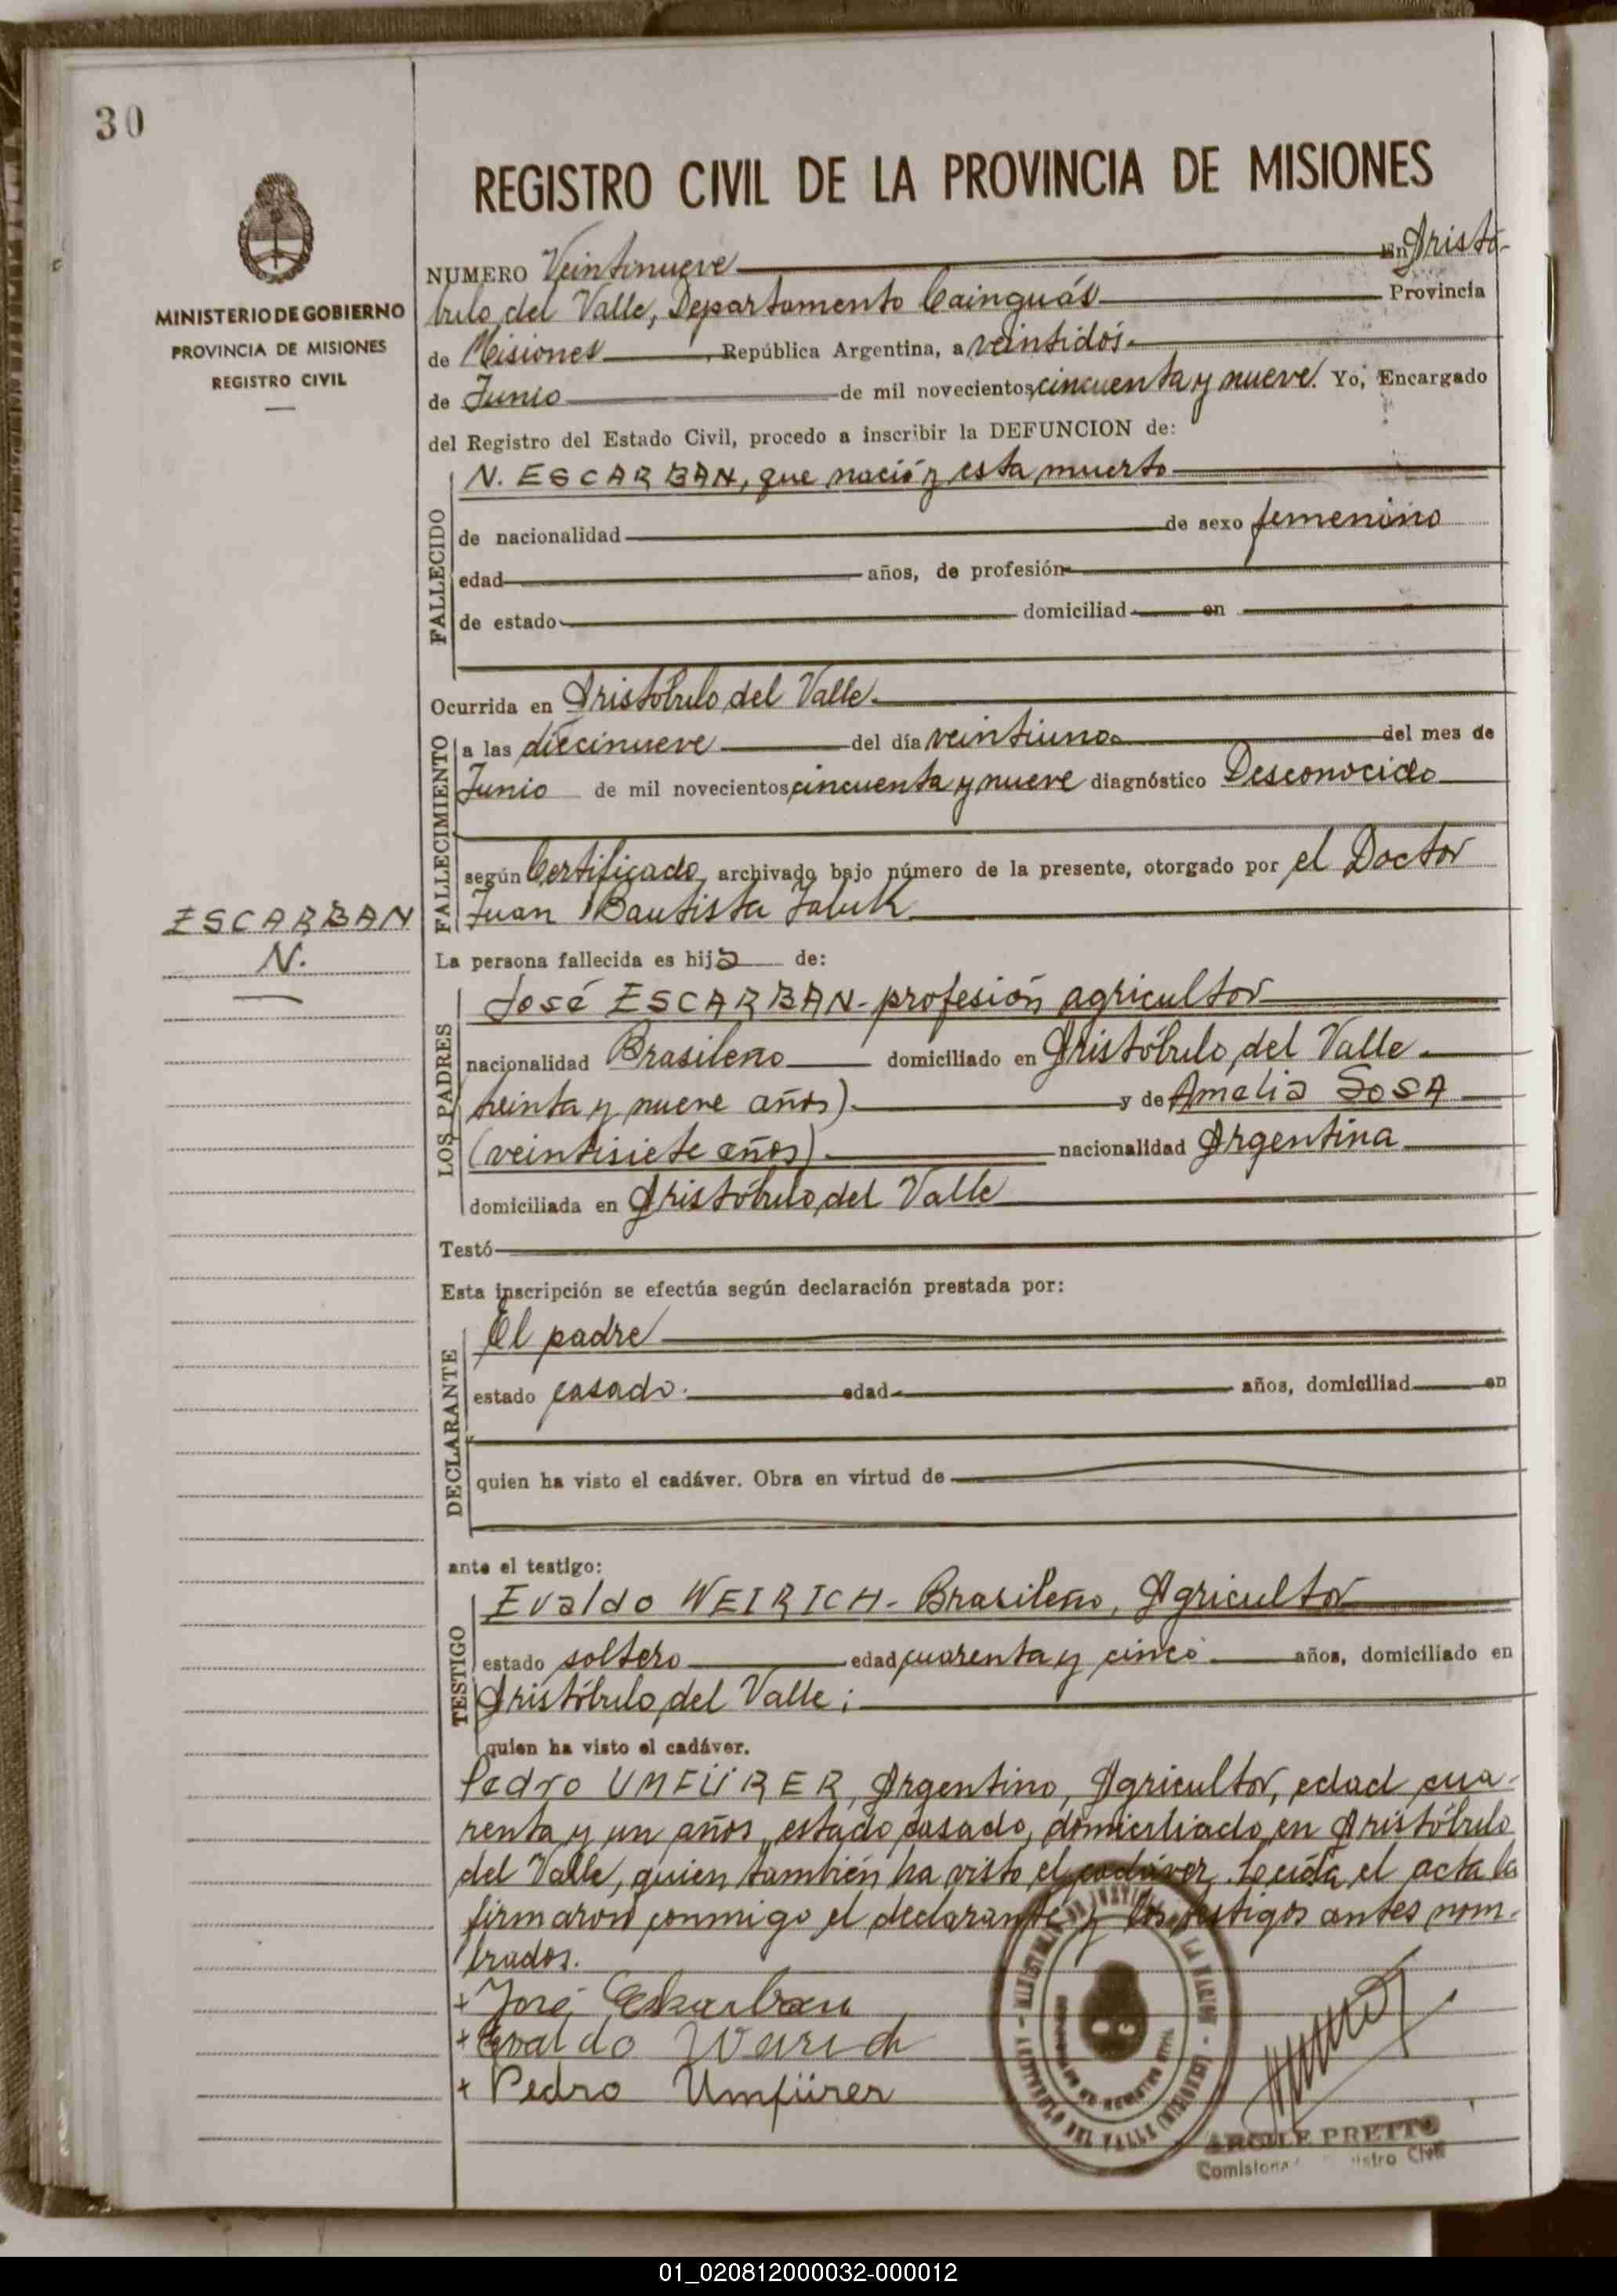 30
REGISTRO CIVIL DE LA PROVINCIA DE MISIONES
MINISTERIO DE GOBIERNO
PROVINCIA DE MISIONES
REGISTRO CIVIL
NUMERO Veintinueve En Aristó-
bulo del Valle, Departamento Cainguás Provincia
de Misiones, República Argentina, a veintidós
de Junio de mil novecientos cincuenta y nueve. Yo, Encargado
del Registro del Estado Civil, procedo a inscribir la DEFUNCION de:
FALLECIDO
N. ESCARBAN, que nació y esta muerto
de nacionalidad de sexo femenino
edad años, de profesión
de estado domiciliad en
Ocurrida en Aristóbulo del Valle.
FALLECIMIENTO
a las diecinueve del día veintiuno del mes de
Junio de mil novecientos cincuenta y nueve diagnóstico Desconocido
según Certificado, archivado bajo número de la presente, otorgado por el Doctor
Juan Bautista
ESCARBAN
N.
La persona fallecida es hija de:
LOS PADRES
José ESCARBAN - profesión agricultor
nacionalidad Brasileño domiciliado en Aristóbulo del Valle.
treinta y nueve años). y de Amelia SOSA
(veintisiete años). nacionalidad Argentina
domiciliada en Aristóbulo del Valle
Testó
Esta inscripción se efectúa según declaración prestada por:
DECLARANTE
El padre
estado casado. edad años, domiciliad en
quien ha visto el cadáver. Obra en virtud de
ante el testigo:
TESTIGO
Evaldo WEIRICH - Brasileño, Agricultor
estado soltero edad cuarenta y cinco años, domiciliado en
Aristóbulo del Valle;
quien ha visto el cadáver.
Pedro UMFÜRER, Argentino, Agricultor, edad cua-
renta y un años, estado casado, domiciliado en Aristóbulo
del Valle, quien también ha visto el cadáver. Leída el acta la
firmaron conmigo el declarante y los testigos antes nom-
brados.
+ José Eskarban
+ Evaldo Weirich
+ Pedro Umfürer
DEL VALLE (MISIONES)
PRETTO
01_020812000032-000012